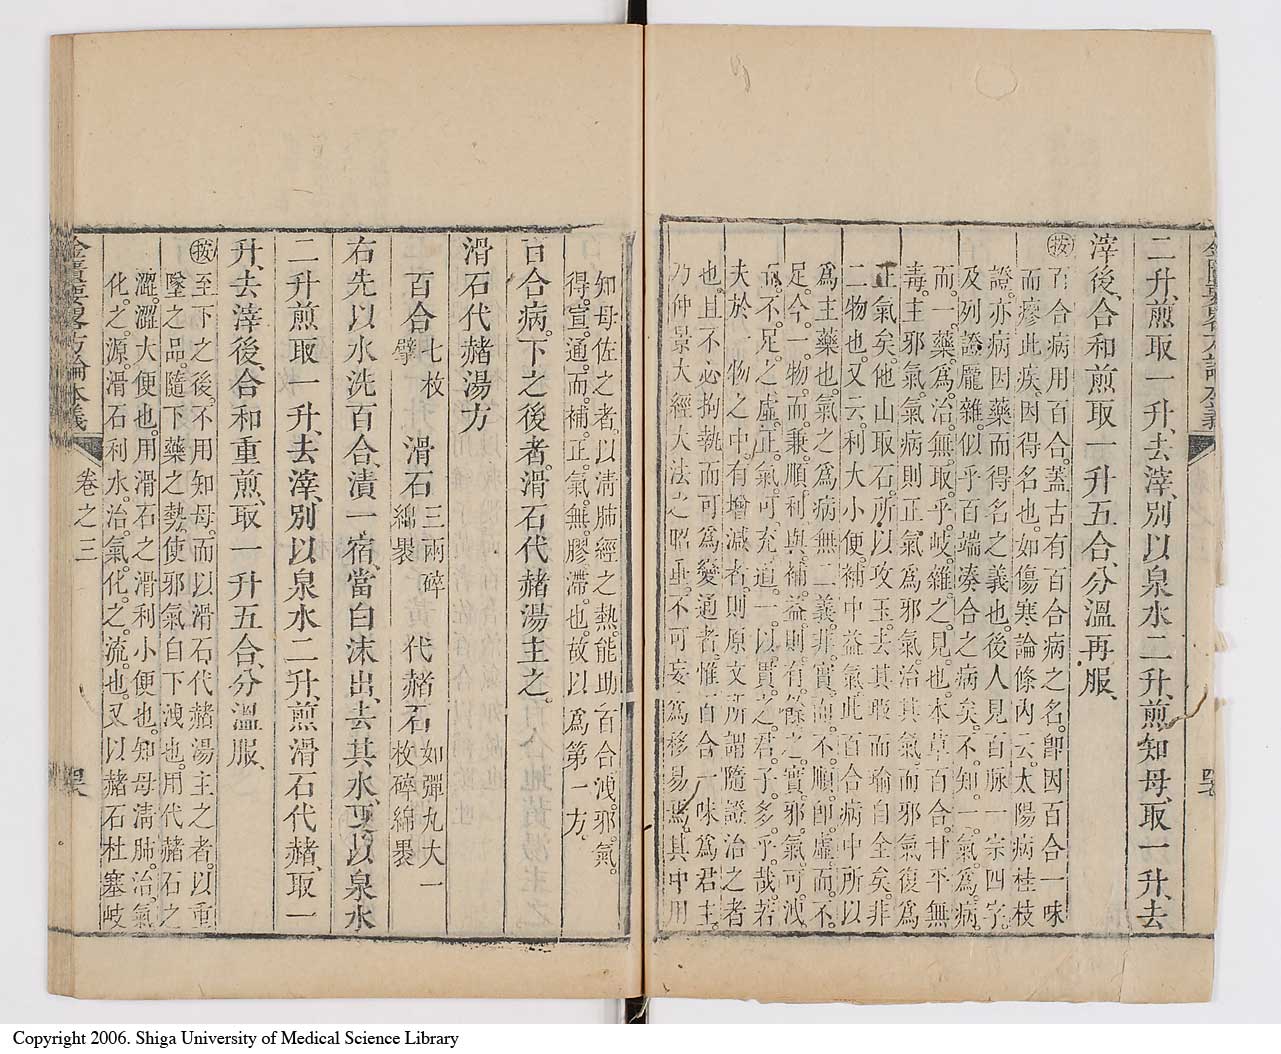 二升煎取一升、去滓、別以泉水二升、煎知母、取一升、去
滓後、合和煎取一升五合、分溫再服、
㊟百合病用百合。蓋古有百合病之名。卽因百合一味
而瘳此疾。因得名也。如傷寒論條內云。太陽病桂枝
證。亦病因藥而得名之義也。後人見百脉一宗四字。
及列證龐雜。似乎百端凑合之病矣。不知一氣爲病。
而一藥爲治。無取乎岐雜之見也。本草百合。甘平無
毒。主邪氣。氣病則正氣爲邪氣。治其氣。而邪氣復爲
正氣矣。他山取石。所以攻玉。去其瑕而瑜自全矣。非
二物也。又云。利大小便。補中益氣。此百合病中所以
爲主藥也。氣之爲病。無二義。非實而不順。卽虛而不
足。今一物。而兼順利與補益。則有餘之實邪氣可洩。
而不足之虛正氣可充。道一以貫之。君子多乎哉。若
夫於一物之中。有增減者。則原文所謂隨證治之者
也。且不必拘執而可爲變通者。惟百合一味爲君主。
乃仲景大經大法之昭垂。不可妄爲移易焉。其中用
金匱要畧方論本義
知母佐之者。以淸肺經之熱。能助百合洩邪氣。
得宣通。而補正氣。無膠滯也。故以爲第一方。
百合病。下之後者。滑石代赭湯主之。
滑石代赭湯方
百合七枚擘 滑石三兩碎綿裹 代赭石如彈丸大一枚碎綿裹
右先以水洗百合、漬一宿、當白沫出、去其水、更以泉水
二升煎取一升、去滓、別以泉水二升、煎滑石代赭、取一
升、去滓後、合和重煎、取一升五合、分溫服、
㊟至下之後。不用知母。而以滑石代赭湯主之者。以重
墜之品。隨下藥之勢。使邪氣自下洩也。用代赭石之
澀。澀大便也。用滑石之滑利小便也。知母淸肺。治氣
化之源。滑石利水。治氣化之流也。又以赭石杜塞岐
金匱要畧方論本義 卷之三
Copyright 2006. Shiga University of Medical Science Library